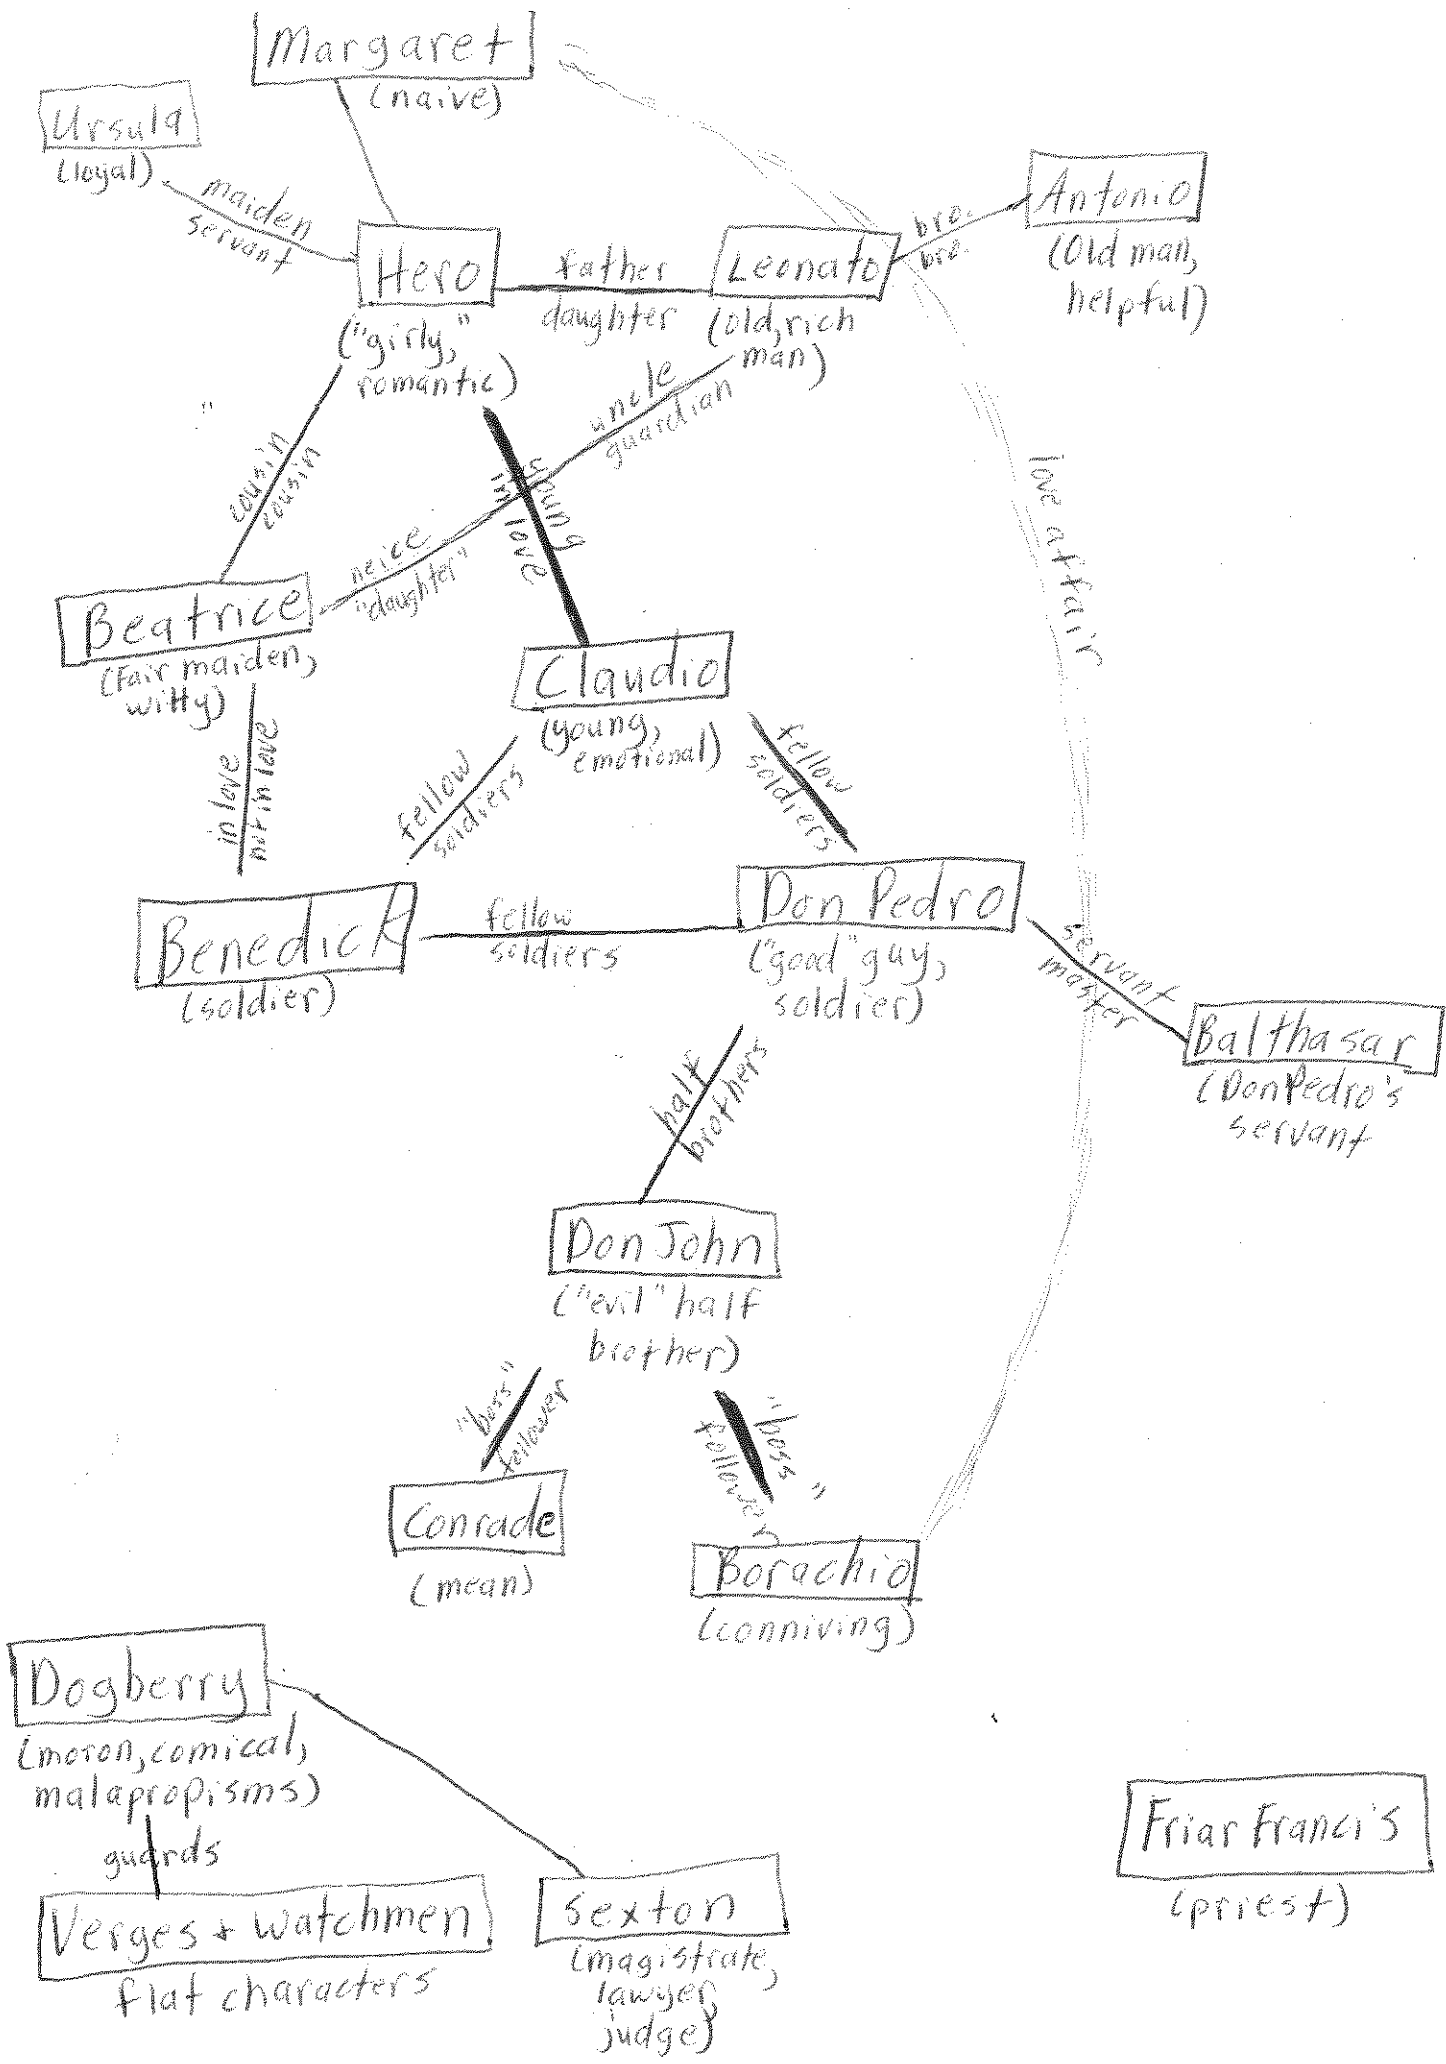 Margaret
(naive)
Ursula
(loyal)
maiden
servant
Antonio
(Old man,
helpful)
bro.
bro.
Hero
("girly,"
romantic)
father
daughter
Leonato
(old, rich
man)
uncle
guardian
cousin
cousin
neice
"daughter"
young
in love
love affair
Beatrice
(Fair maiden,
witty)
Claudio
(young,
emotional)
in love
not in love
fellow
soldiers
fellow
soldiers
Benedick
(soldier)
fellow
soldiers
Don Pedro
("good" guy,
soldier)
servant
master
Balthasar
(Don Pedro's
servant
half
brothers
Don John
("evil" half
brother)
"boss"
follower
"boss"
follower
Conrade
(mean)
Borachio
(conniving)
Dogberry
(moron, comical,
malapropisms)
guards
Verges + Watchmen
flat characters
Sexton
(magistrate,
lawyer,
judge)
Friar Francis
(priest)